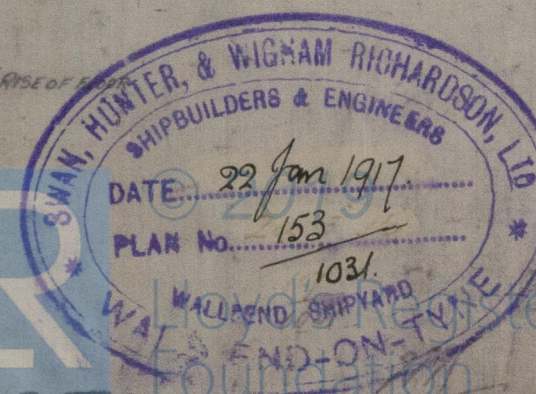 RISE OF FLOOR
SWAN, HUNTER, & WIGHAM RICHARDSON, LTD
SHIPBUILDERS & ENGINEERS
DATE 22 Jan 1917.
PLAN No. 153
1031.
WALLSEND SHIPYARD
WALLSEND-ON-TYNE
© 2019
Lloyd's Register
Foundation
R